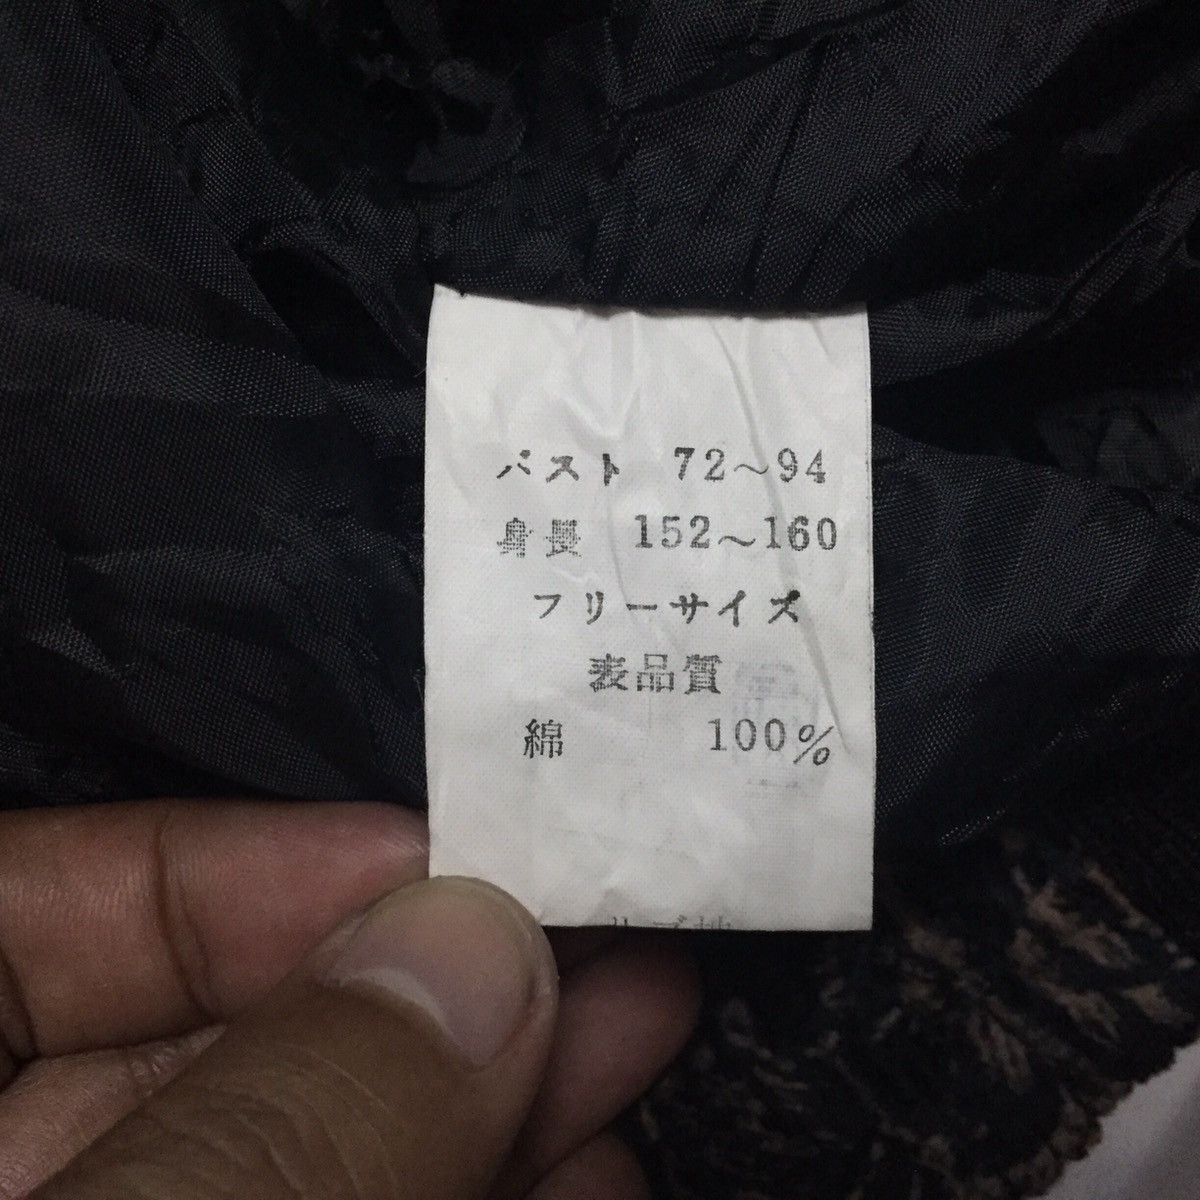 バスト 72〜94
身長 152〜160
フリーサイズ
表品質
綿 100%